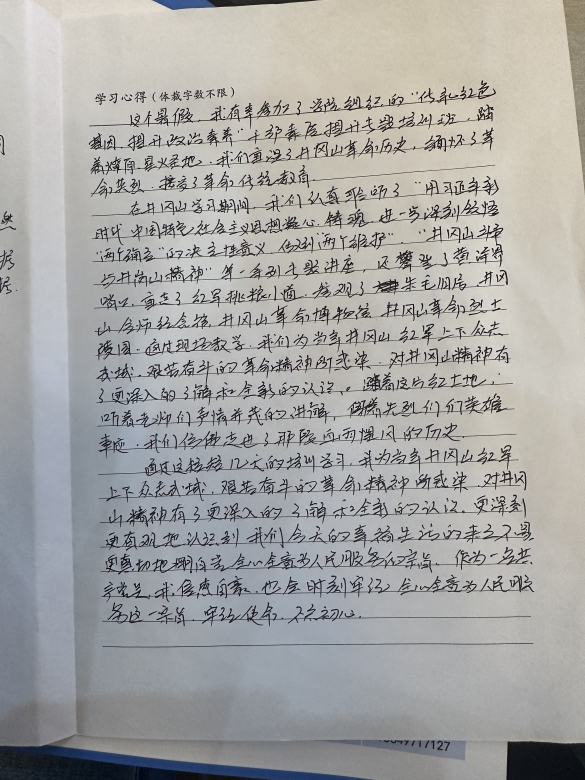 学习心得（体裁字数不限）
这个暑假，我有幸参加了学院组织的“传承红色
基因，提升政治素养”干部素质提升专题培训班，踏
着燎原星火圣地，我们重温了井冈山革命历史，缅怀了革
命英烈，接受了革命传统教育。
在井冈山学习期间，我们认真聆听了“用习近平新
时代中国特色社会主义思想凝心铸魂，进一步深刻领悟
“两个确立”的决定性意义，做到“两个维护””、“井冈山斗争
与井冈山精神”等一系列专题讲座，还攀登了黄洋界
哨口，重走了红军挑粮小道，参观了朱毛旧居、井冈
山会师纪念馆、井冈山革命博物馆、井冈山革命烈士
陵园。通过现场教学，我们为当年井冈山红军上下众志
成城，艰苦奋斗的革命精神所感染，对井冈山精神有
了更深入的了解和全新的认识。踏着这片红土地，
听着老师们声情并茂的讲解，先烈们英雄
事迹，我们仿佛走进了那段血雨腥风的历史。
通过这短短几天的培训学习，我为当年井冈山红军
上下众志成城，艰苦奋斗的革命精神所感染，对井冈
山精神有了更深入的了解和全新的认识，更深刻
更直观地认识到我们今天的幸福生活的来之不易
更真切地明白全心全意为人民服务的宗旨。作为一名共
产党员，我倍感自豪，也会时刻牢记全心全意为人民服
务这一宗旨，牢记使命，不忘初心。
7127